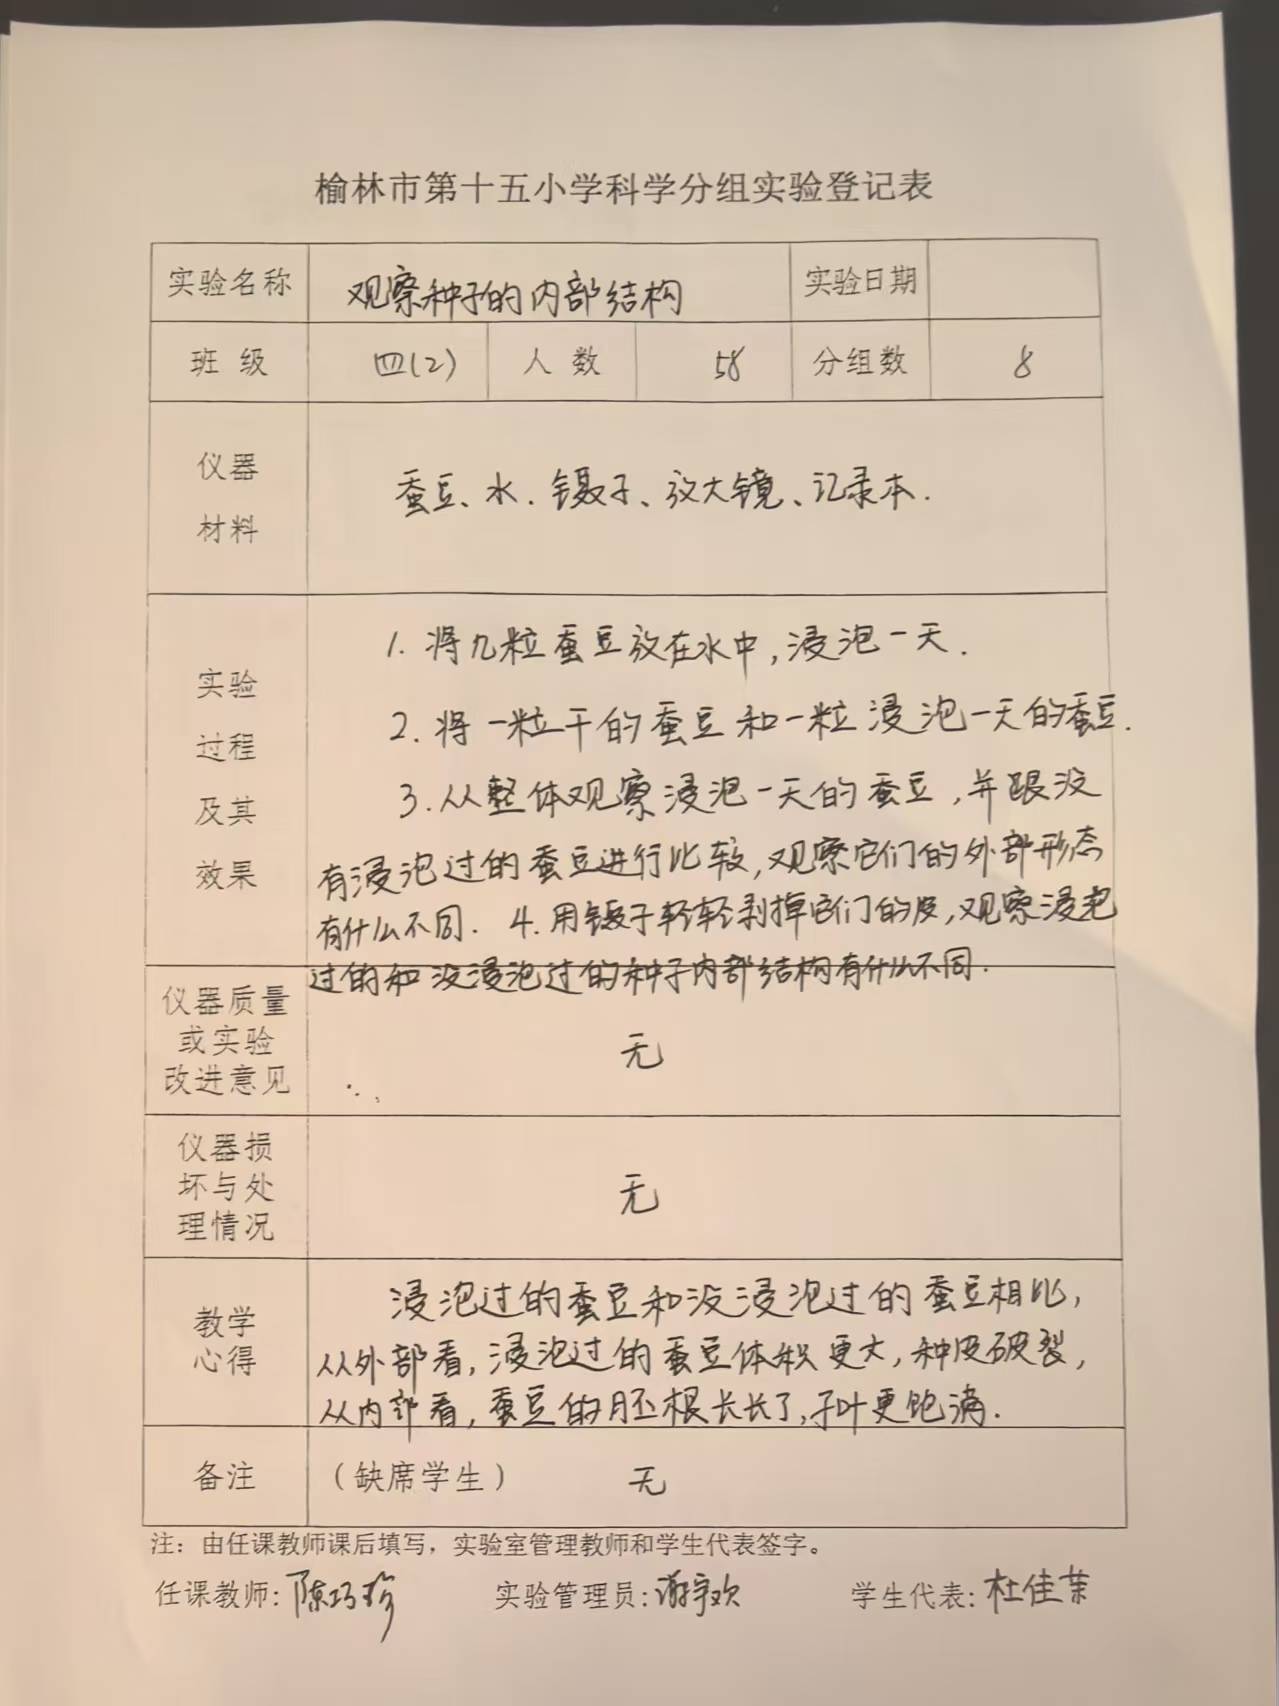 榆林市第十五小学科学分组实验登记表
实验名称 观察种子的内部结构 实验日期
班 级 四(2) 人 数 58 分组数 8
仪器
材料
蚕豆、水.镊子、放大镜、记录本.
实验
过程
及其
效果
1.将几粒蚕豆放在水中,浸泡一天.
2.将一粒干的蚕豆和一粒浸泡一天的蚕豆.
3.从整体观察浸泡一天的蚕豆,并跟没
有浸泡过的蚕豆进行比较,观察它们的外部形态
有什么不同. 4.用镊子轻轻剥掉它们的皮,观察浸泡
过的和没浸泡过的种子内部结构有什么不同.
仪器质量
或实验
改进意见
无
仪器损
坏与处
理情况
无
教学
心得
浸泡过的蚕豆和没浸泡过的蚕豆相比,
从外部看,浸泡过的蚕豆体积更大,种皮破裂,
从内部看,蚕豆的胚根长长了,子叶更饱满.
备注 (缺席学生) 无
注：由任课教师课后填写，实验室管理教师和学生代表签字。
任课教师:陈巧珍 实验管理员:谢宇欢 学生代表:杜佳茉